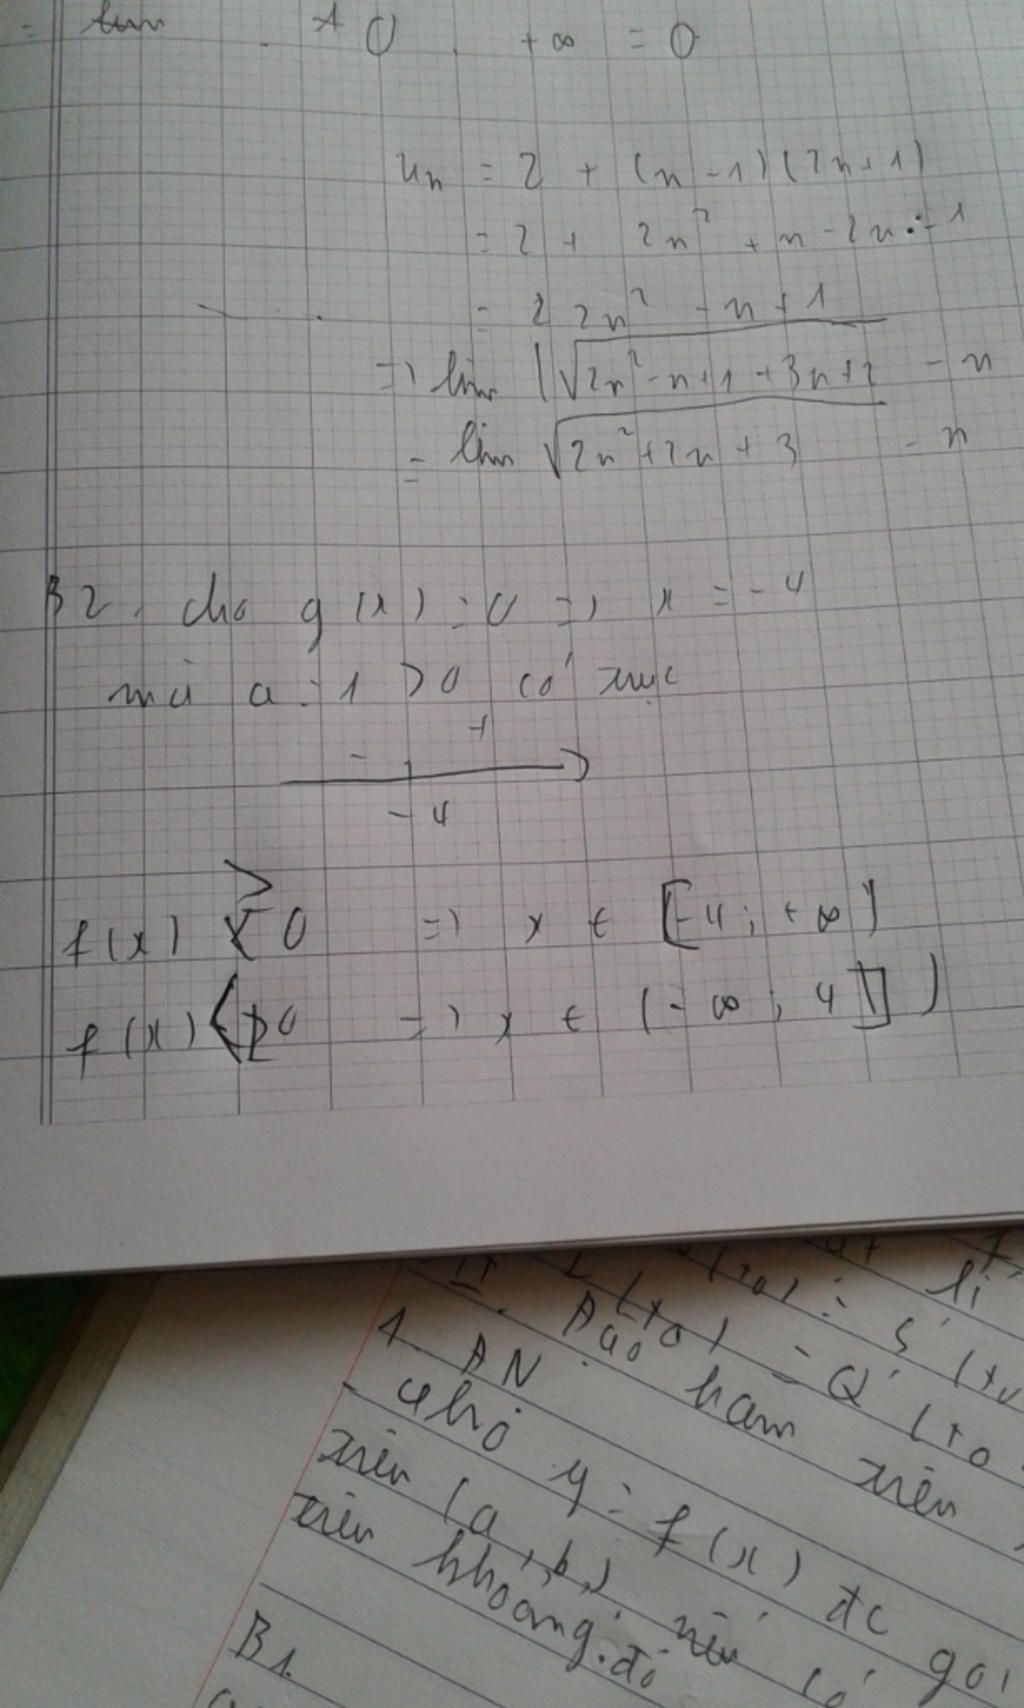 = lim +0 . +∞ = 0
un = 2 + (n - 1)(2n + 1)
= 2 + 2n² + n - 2n - 1
= 2n² - n + 1
=) lim (√2n² - n + 1 + 3n + 2 - n
= lim √2n² + 2n + 3 - n
B2. cho g(x) = 0 =) x = -4
mà a = 1 > 0 có trục
- +
-4
f(x) ≥ 0 =) x ∈ [-4; +∞)
f(x) < 0 =) x ∈ (-∞; 4)
li
(x0) = S'(x0
(x0) = Q'(x0
II. Đạo hàm trên
1. ĐN
- cho y = f(x) đc gọi
trên (a, b) nếu có
trên khoảng đó
B1.